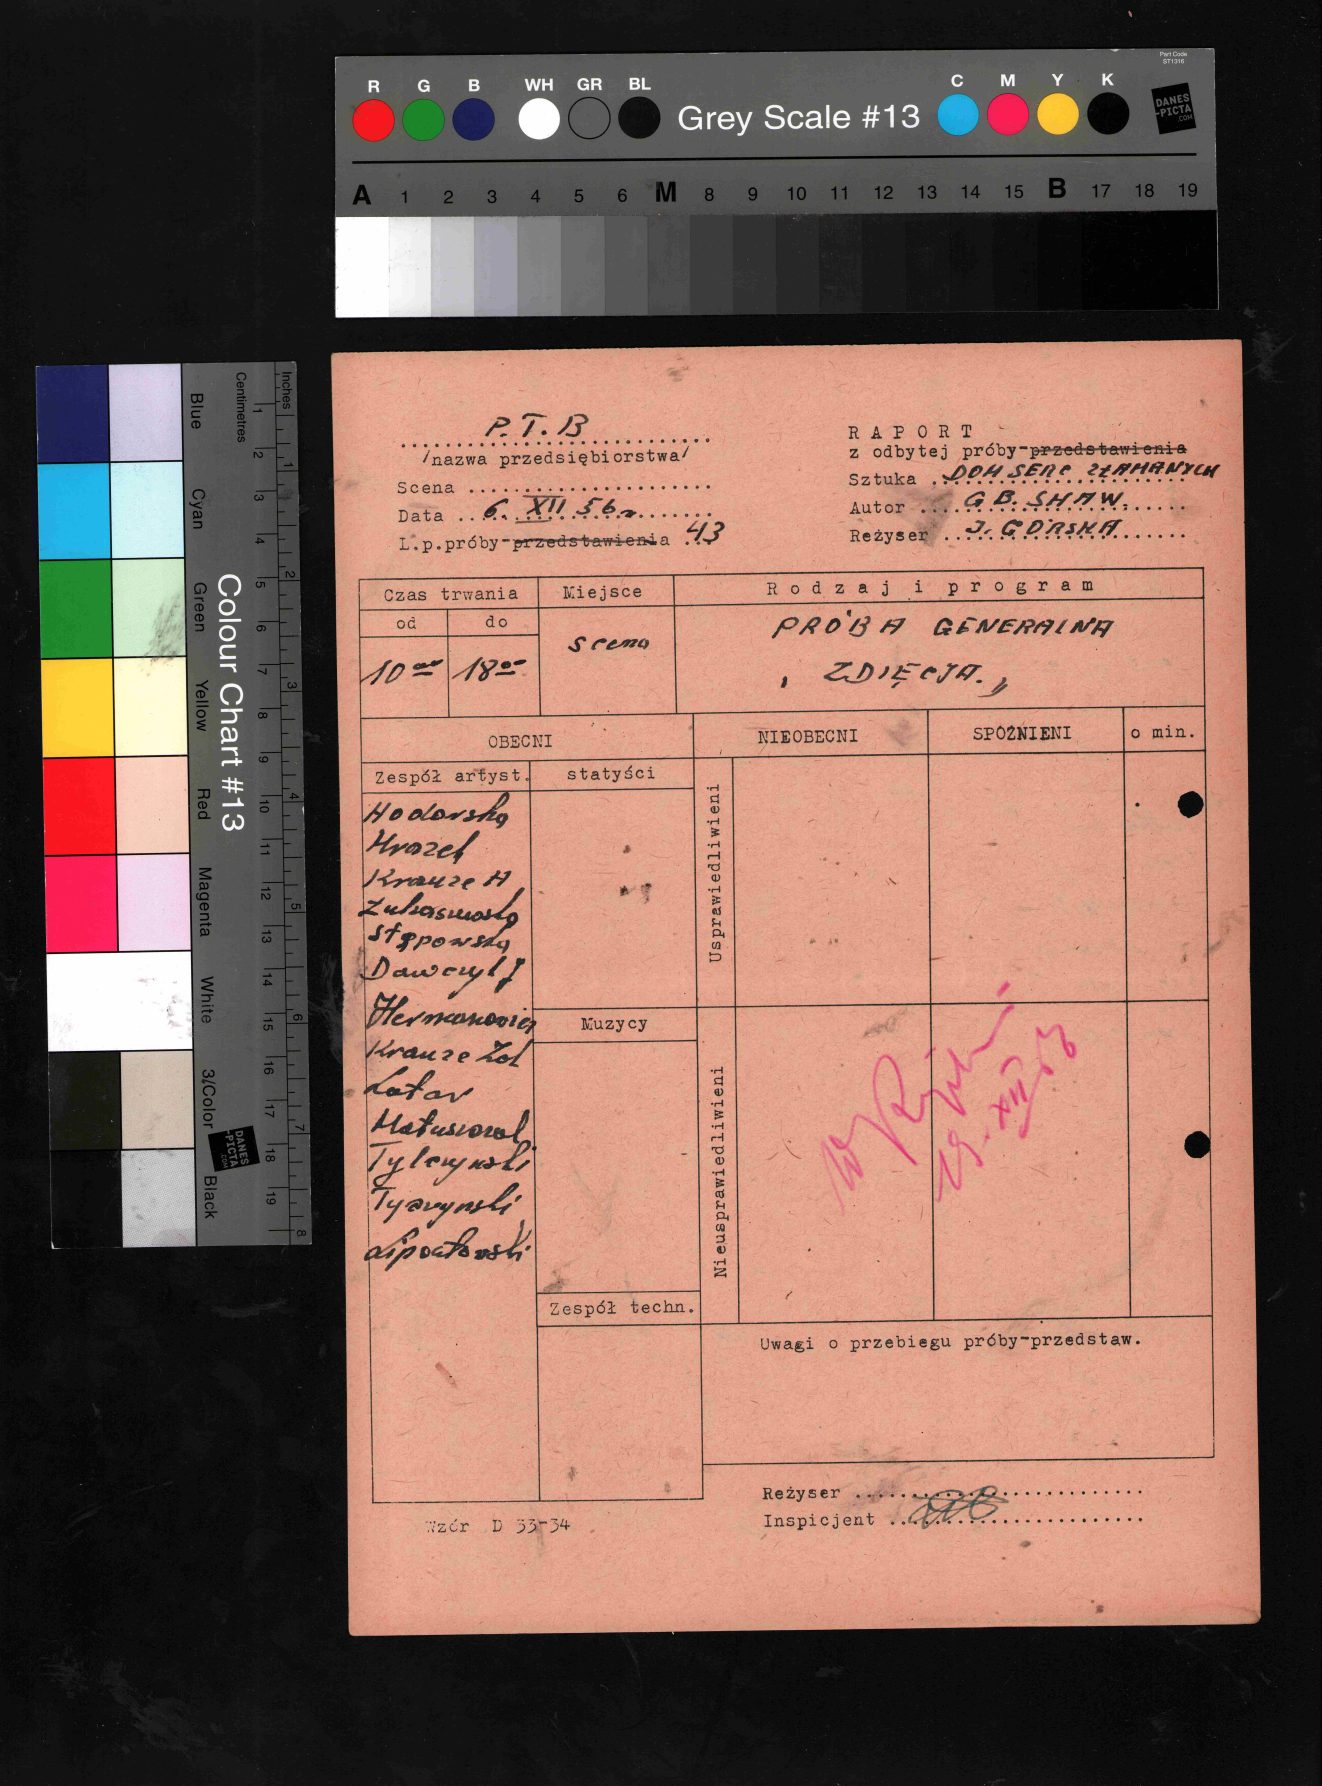 Part Code
ST1316
R G B WH GR BL Grey Scale #13 C M Y K
DANES
-PICTA
.COM
A 1 2 3 4 5 6 M 8 9 10 11 12 13 14 15 B 17 18 19
Inches
Centimetres
Colour Chart #13
Blue
Cyan
Green
Yellow
Red
Magenta
White
3/Color
Black
1 2 3 4 5 6 7 8 9 10 11 12 13 14 15 16 17 18 19
1 2 3 4 5 6 7 8
DANES
-PICTA
.COM
P.T.B
/nazwa przedsiębiorstwa/
Scena
Data 6. XII 56 r
L.p.próby-przedstawienia 43
RAPORT
z odbytej próby-przedstawienia
Sztuka DOM SERC ZŁAMANYCH
Autor G B. SHAW.
Reżyser J. GÓRSKA
Czas trwania Miejsce Rodzaj i program
od do
10 00 18 00 scena
PRÓBA GENERALNA
„ ZDIĘCJA. "
OBECNI NIEOBECNI SPÓŹNIENI o min.
Zespół artyst. statyści
Usprawiedliwieni
Hodorska
Mrozek
Krauze H
Łukasiewska
Stępowska
Dawczyk J
Hermanowicz
Muzycy
Krauze Zol
Lotar
Matusioval
Tylczyński
Tyszyński
Lipoatowski
Nieusprawiedliwieni
19. XII 56
Zespół techn.
Uwagi o przebiegu próby-przedstaw.
Reżyser
Inspicjent
Wzór D 33-34